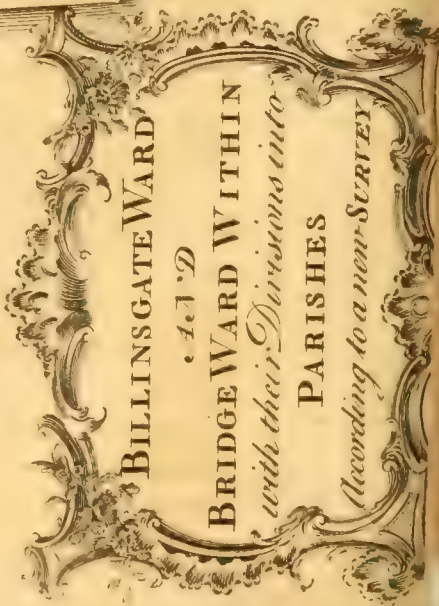 BILLINSGATE WARD
AND
BRIDGE WARD WITHIN
with their Divisions into
PARISHES
According to a new SURVEY